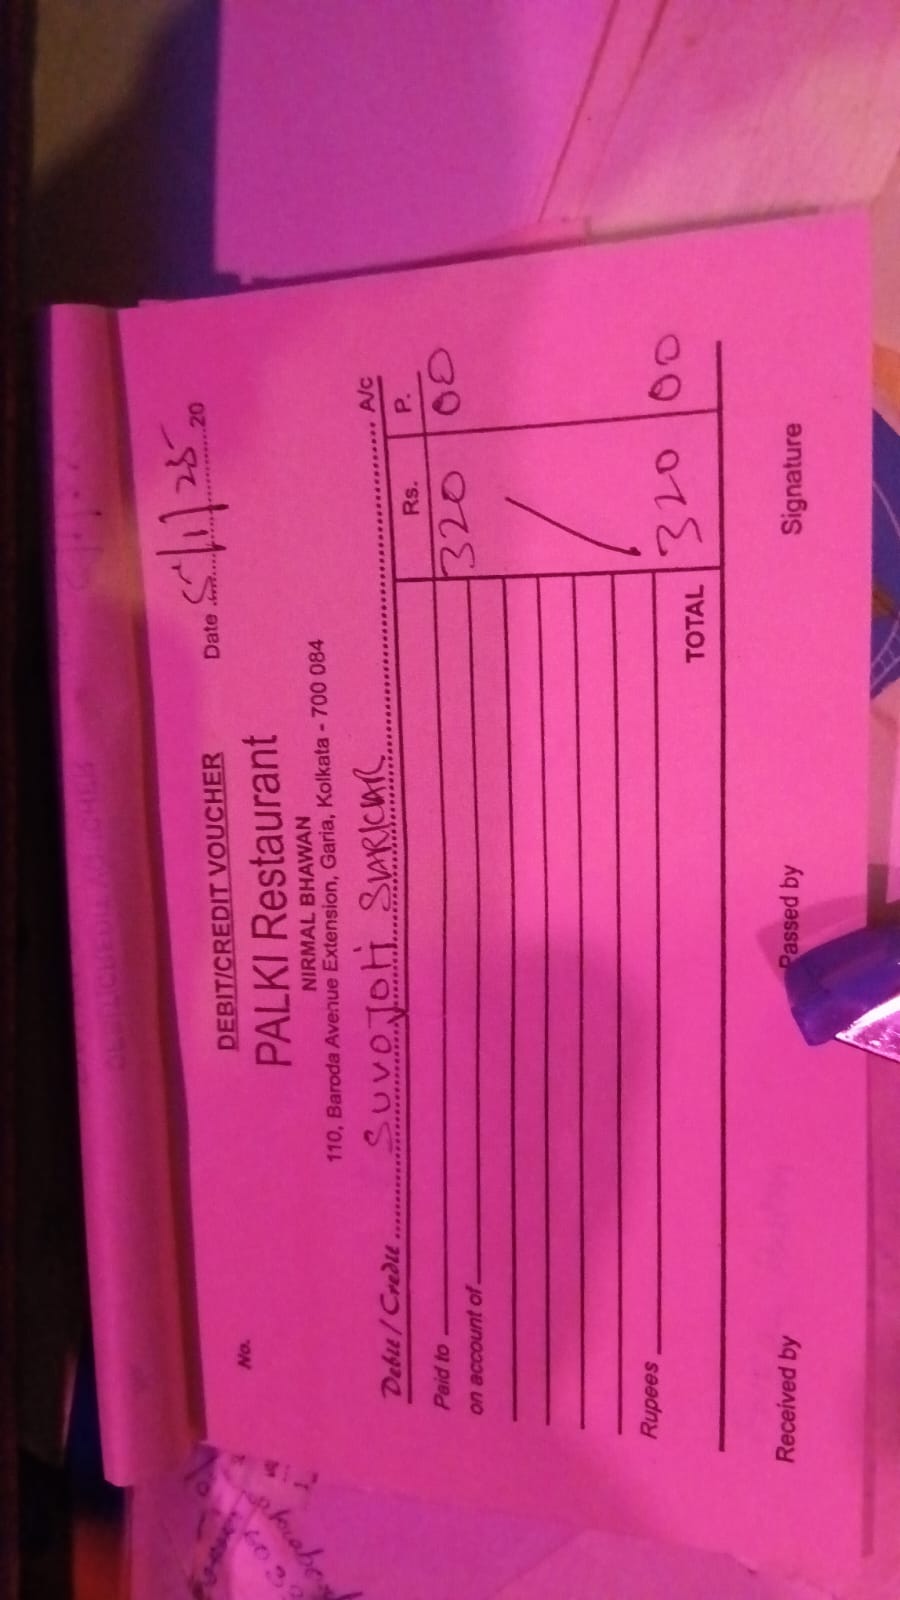 DEBIT/CREDIT VOUCHER
Date 5/1/25 20
No.
PALKI Restaurant
NIRMAL BHAWAN
110, Baroda Avenue Extension, Garia, Kolkata - 700 084
Debit / Credit SUVOJOTI SARKAR A/c
Rs. P.
Paid to 320 00
on account of
Rupees
TOTAL 320 00
Received by Passed by Signature